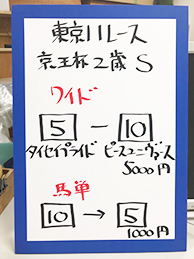 東京11レース
京王杯2歳S
ワイド
5 — 10
タイセイプライド ピースユニヴァース
5000円
馬単
10 → 5
1000円